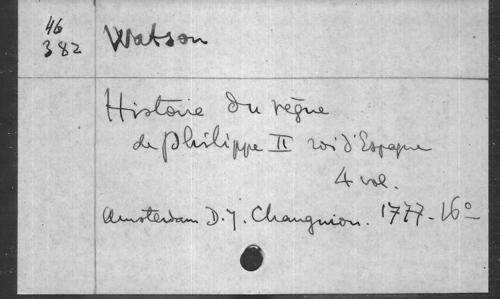 46
382
Watson
Histoire du règne
de Philippe II roi d'Espagne
4 vol.
Amsterdam D. J. Changuion. 1777. 16°